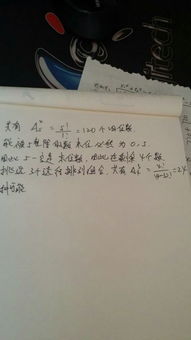 共有 A₅⁴ = 5!/1! = 120个四位数
能被5整除的数末位必然为0、5.
由此5一定是末位数,因此在剩余4个数
挑选3个进行排列组合,共有 A₄³ = 4!/(4-3)! = 24
种可能
tech